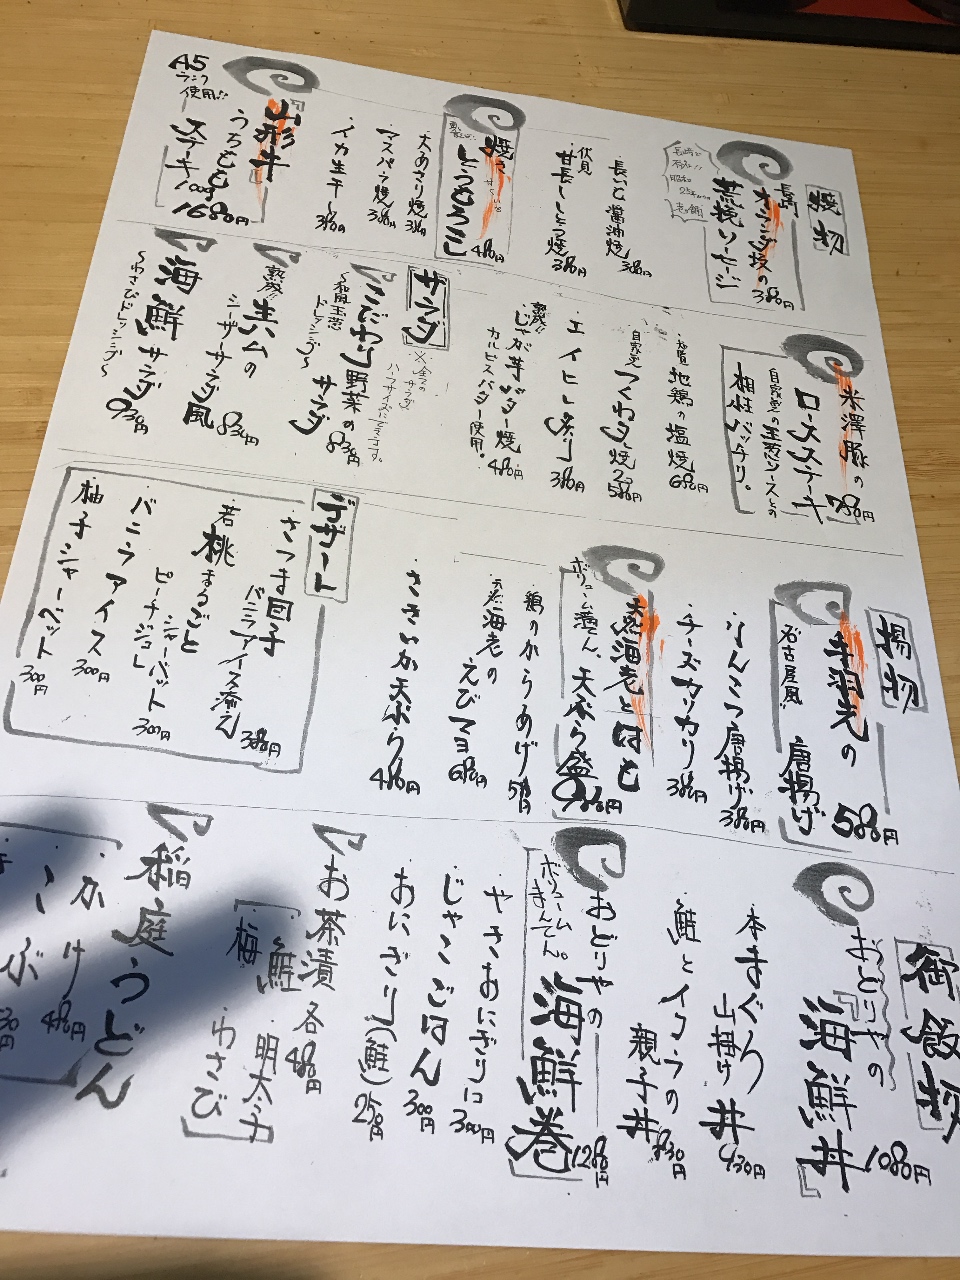 焼物
長崎
オランダ坂の
荒挽ソーセージ
380円
長崎で
昭和
長いも醤油焼
380円
伏見
甘長しとう焼
380円
焼き
とうもろこし
480円
大あさり焼
380円
マスパラ焼
380円
イカ生干し
380円
山形牛
うちもも
ステーキ 100g
1680円
A5
ランク
使用!!
米澤豚の
ロースステーキ
780円
自家製の玉葱ソースとの
相性バッチリ。
地鶏の塩焼
680円
自家製
つくね焼
2コ
580円
エイヒレ炙り
380円
じゃが芋バター焼
480円
カルピスバター使用。
サラダ
※全ての
サラダ
ハーフサイズにできます。
こだわり野菜の
サラダ
830円
〜和風玉葱
ドレッシング〜
熟成!!
生ハムの
シーザーサラダ風
830円
海鮮サラダ
930円
〜わさびドレッシング〜
揚物
手羽先の
唐揚げ
580円
名古屋風!!
なんこつ唐揚げ
380円
チーズカリカリ
380円
天然海老とはも
天ぷら盛
980円
ボリューム満てん、
鶏のからあげ
天然海老の
えびマヨ
680円
さきいか天ぷら
480円
デザート
さつま団子
バニラアイス添え
380円
若桃まるごと
ピーチジュレ
シャーベット
300円
バニラアイス
300円
柚子シャーベット
300円
御飯物
おどりやの
海鮮丼
1080円
本まぐろ
山掛け丼
930円
鮭とイクラの
親子丼
930円
おどりやの
海鮮巻
1280円
ボリューム
まんてん。
やきおにぎり
300円
じゃこごはん
300円
おにぎり(鮭)
250円
お茶漬
各480円
鮭 明太子
梅 わさび
稲庭うどん
かけ
480円